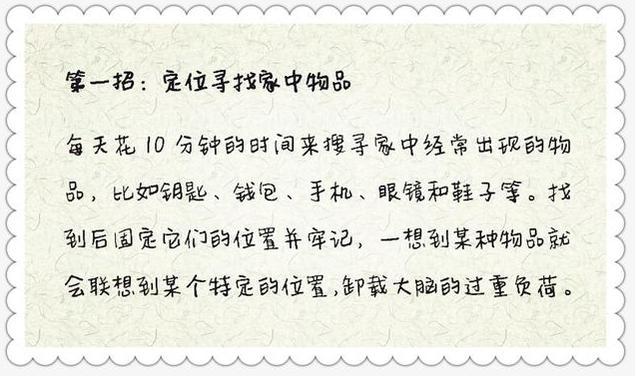 第一招：定位寻找家中物品
每天花10分钟的时间来搜寻家中经常出现的物
品，比如钥匙、钱包、手机、眼镜和鞋子等。找
到后固定它们的位置并牢记，一想到某种物品就
会联想到某个特定的位置,卸载大脑的过重负荷。